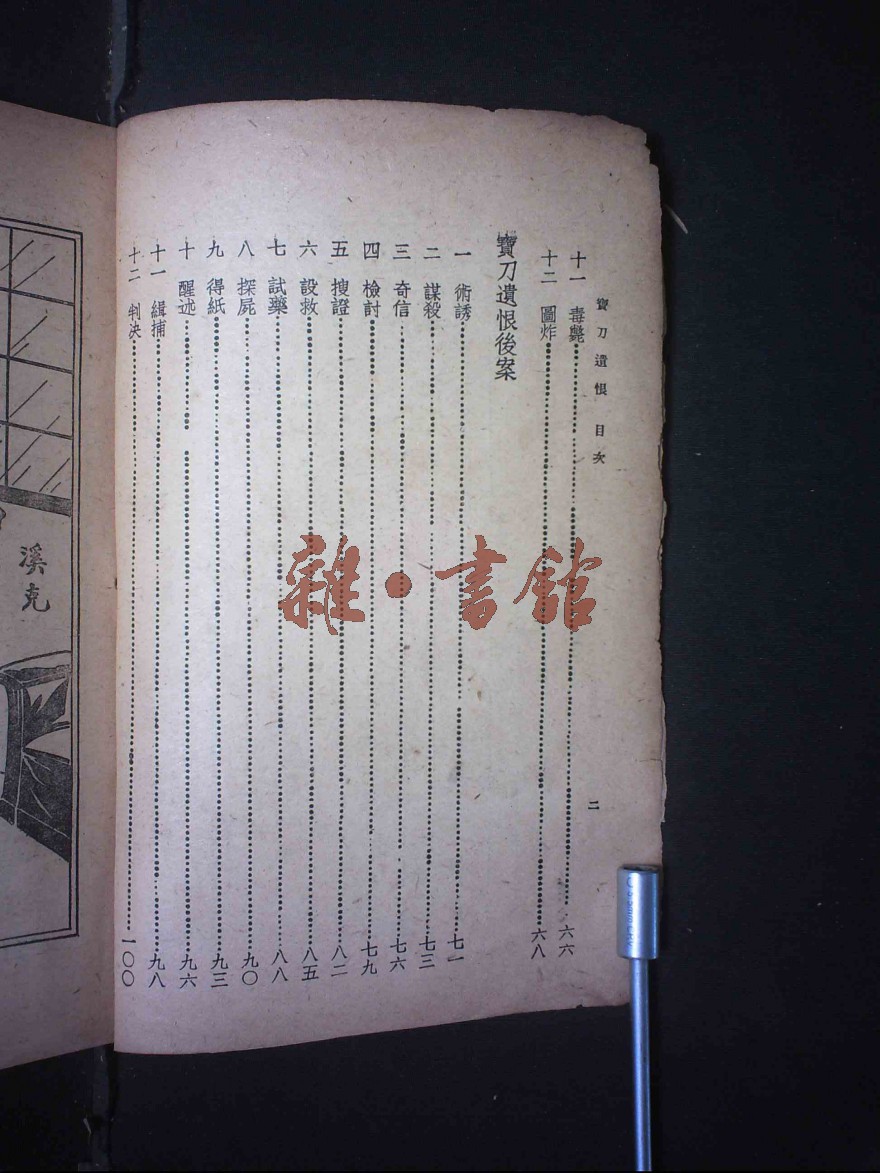 寶刀遺恨 目次
二
十一 毒斃 六六
十二 圖炸 六八
寶刀遺恨後案
一 術誘 七一
二 謀殺 七三
三 奇信 七六
四 檢討 七九
五 搜證 八二
六 設救 八五
七 試藥 八八
八 探屍 九〇
九 得紙 九三
十 醒述 九六
十一 緝捕 九八
十二 判决 一〇〇
溪克
雜·書館